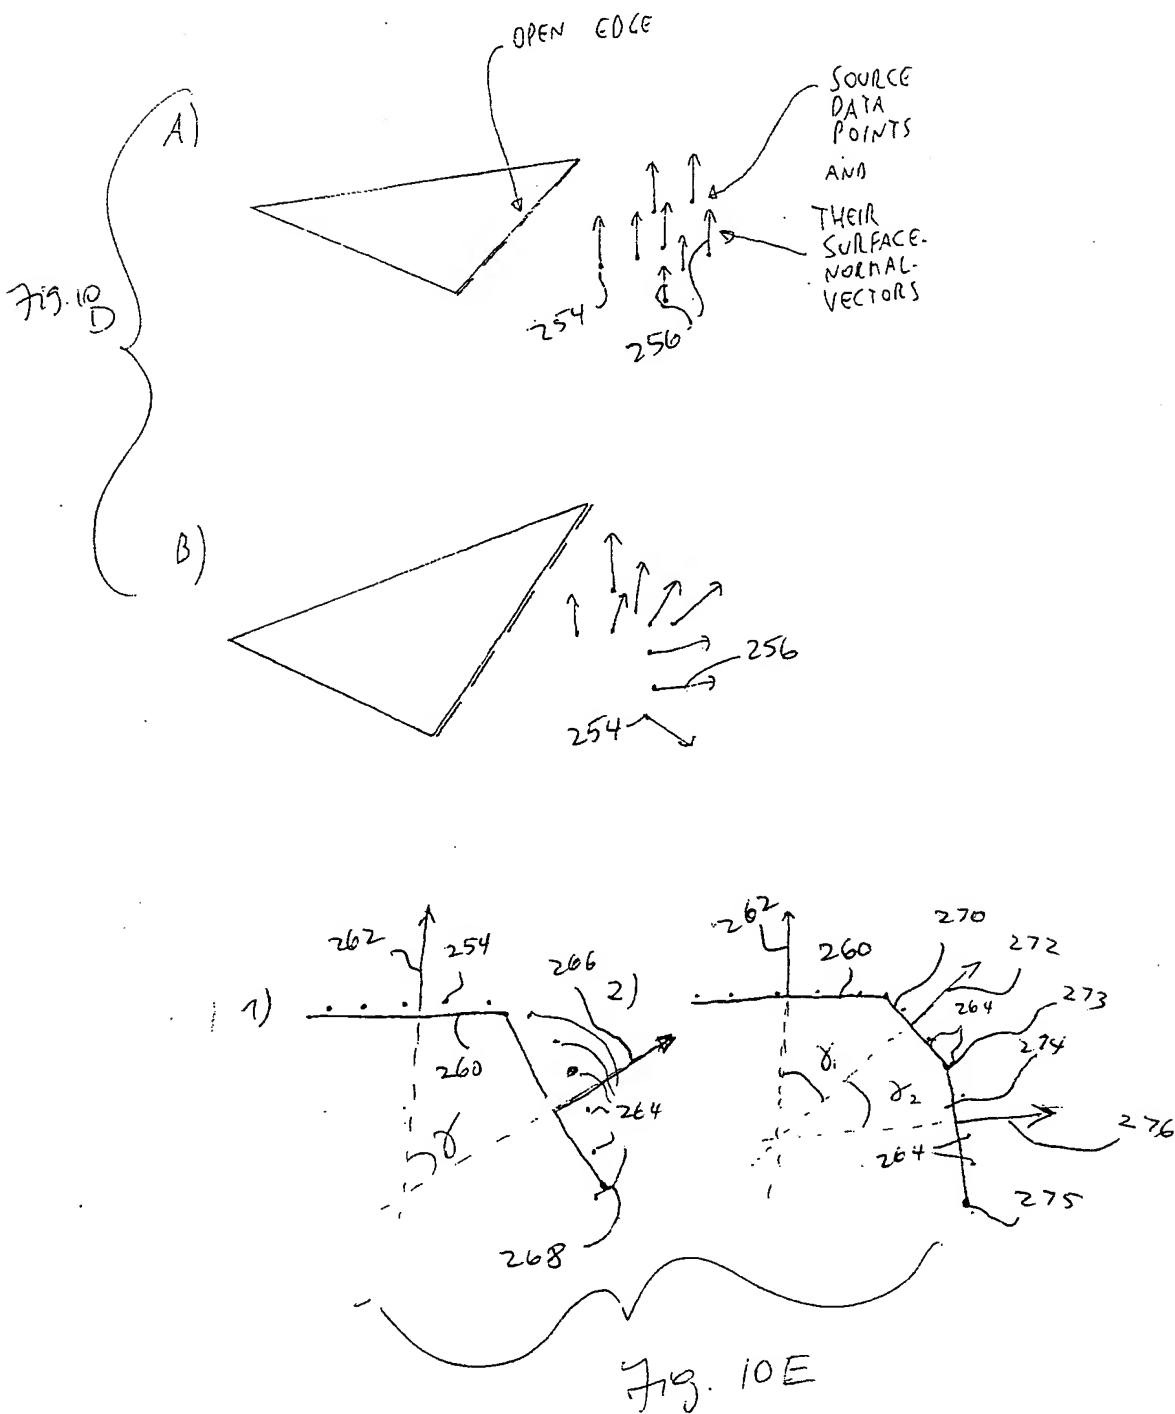 OPEN EDGE
SOURCE
DATA
POINTS
AND
THEIR
SURFACE-
NORMAL-
VECTORS
A)
Fig. 10
D
254
256
B)
256
254
262
254
266
1)
260
264
γ
268
2)
262
260
270
272
264
273
274
γ1
γ2
276
264
275
Fig. 10E